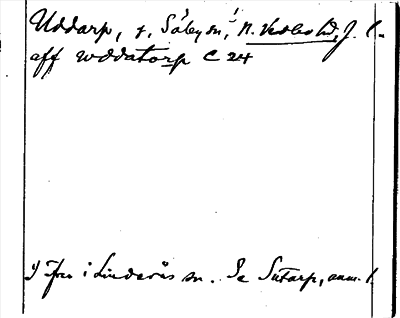 Uddarp, f, Säby sn,¹ N. Vedbo hd, J. l.
aff wddatorp C 24
1) Förr i Linderås sn. Se Sutarp, anm. 1.